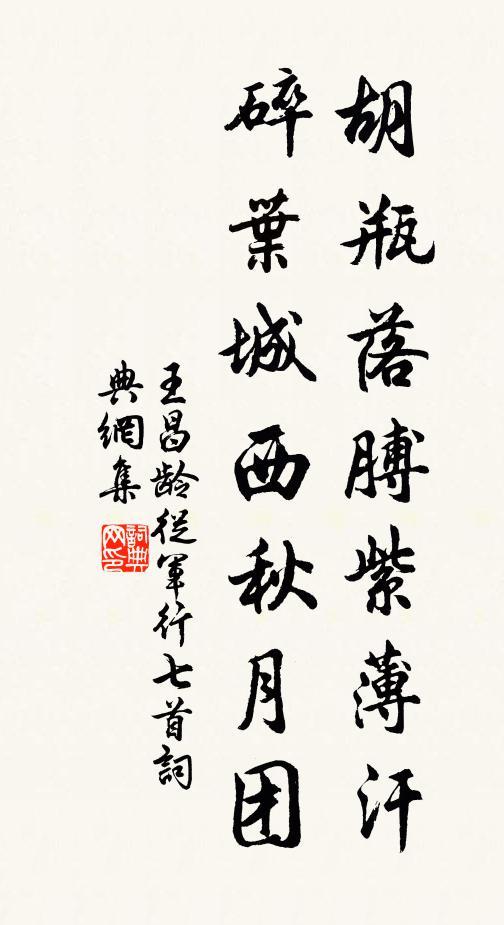 胡瓶落膊紫薄汗
碎葉城西秋月团
王昌龄從軍行七首詞
典網集
詞典
网印